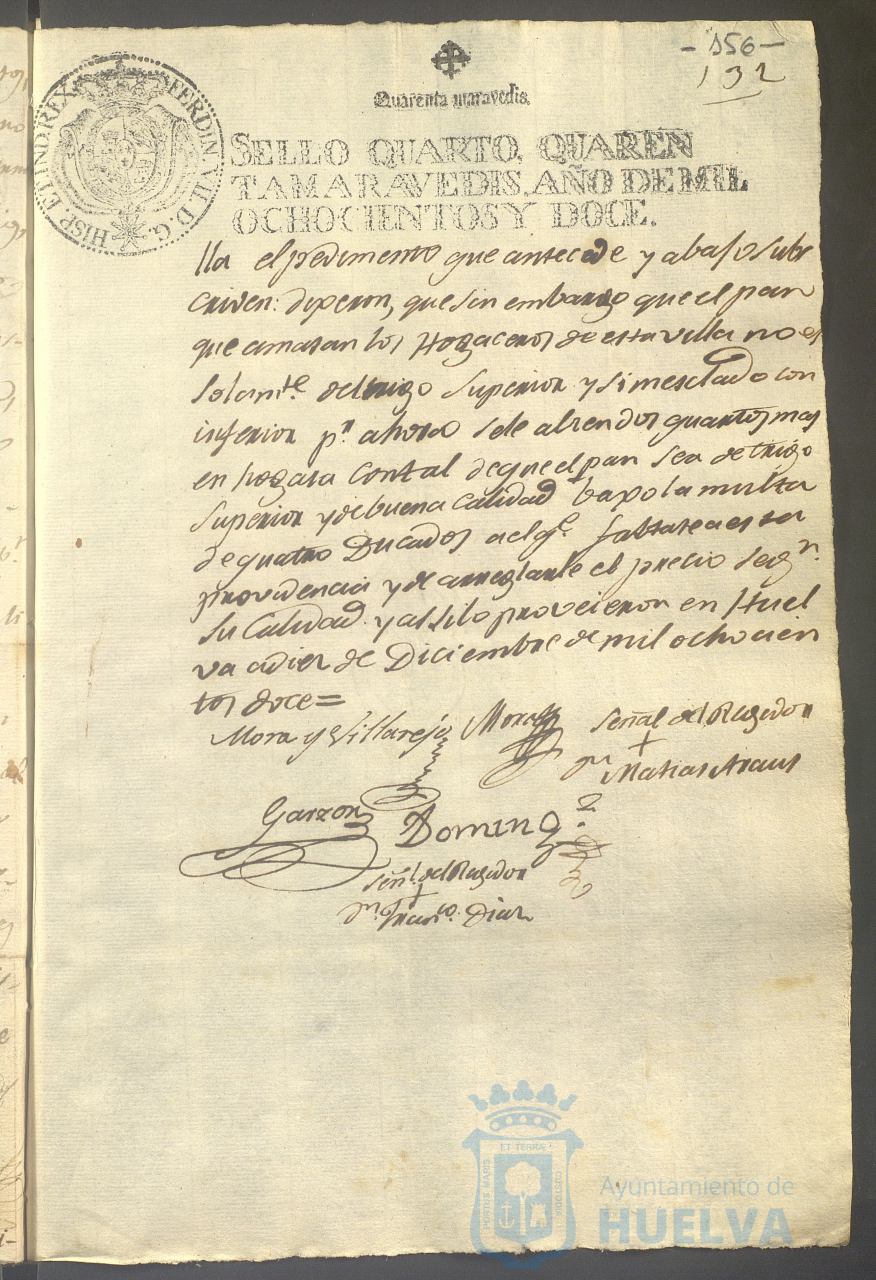 - 156 -
132
Quarenta maravedis.
HISP. ET IND. REX FERDIN. VII. D. G.
SELLO QUARTO, QUAREN
TA MARAVEDIS, AÑO DE MIL
OCHOCIENTOS Y DOCE.
lla el pedimento que antecede y abajo subs
criven: dixeron, que sin embargo que el pan
que amasan los Hogaceros de esta villa no es
solamte. del trigo superior y si mesclado con
inferior pr. ahora se le abren dos quartos mas
en hogasa con tal de que el pan sea de trigo
superior y de buena calidad baxo la multa
de quatro Ducados a el qe. faltare a esta
providencia y de arreglarle el precio segn.
su calidad. y assi lo proveieron en Huel
va a diez de Diciembre de mil ochocien
tos doce=
Mora y Villarejo Mora Señal del Regidor
+
Dn. Matias Araus
Garzon Doming.
Señl. del Regidor
+
Dn. Franco. Diaz
ET TERRÆ
PORTUS MARIS
CUSTODIA
Ayuntamiento de
HUELVA